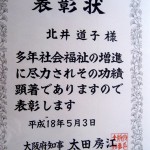 表彰状
北井道子様
多年社会福祉の増進
に尽力されその功績
顕著でありますので
表彰します
平成18年5月3日
大阪府知事 太田房江